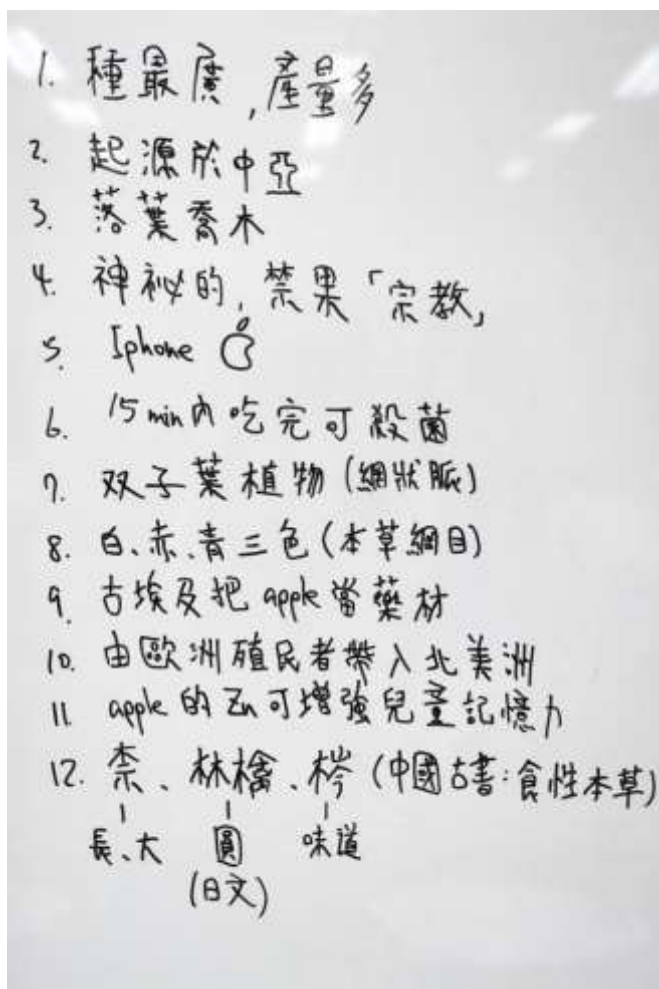 1. 種最廣,產量多
2. 起源於中亞
3. 落葉喬木
4. 神祕的,禁果「宗教」
5. Iphone
6. 15 min內吃完可殺菌
7. 双子葉植物(網狀脈)
8. 白、赤、青三色(本草綱目)
9. 古埃及把 apple當藥材
10. 由歐洲殖民者帶入北美洲
11 apple的Zn可增強兒童記憶力
12. 柰、林檎、梣(中國古書:食性本草)
長、大 圓 味道
(日文)